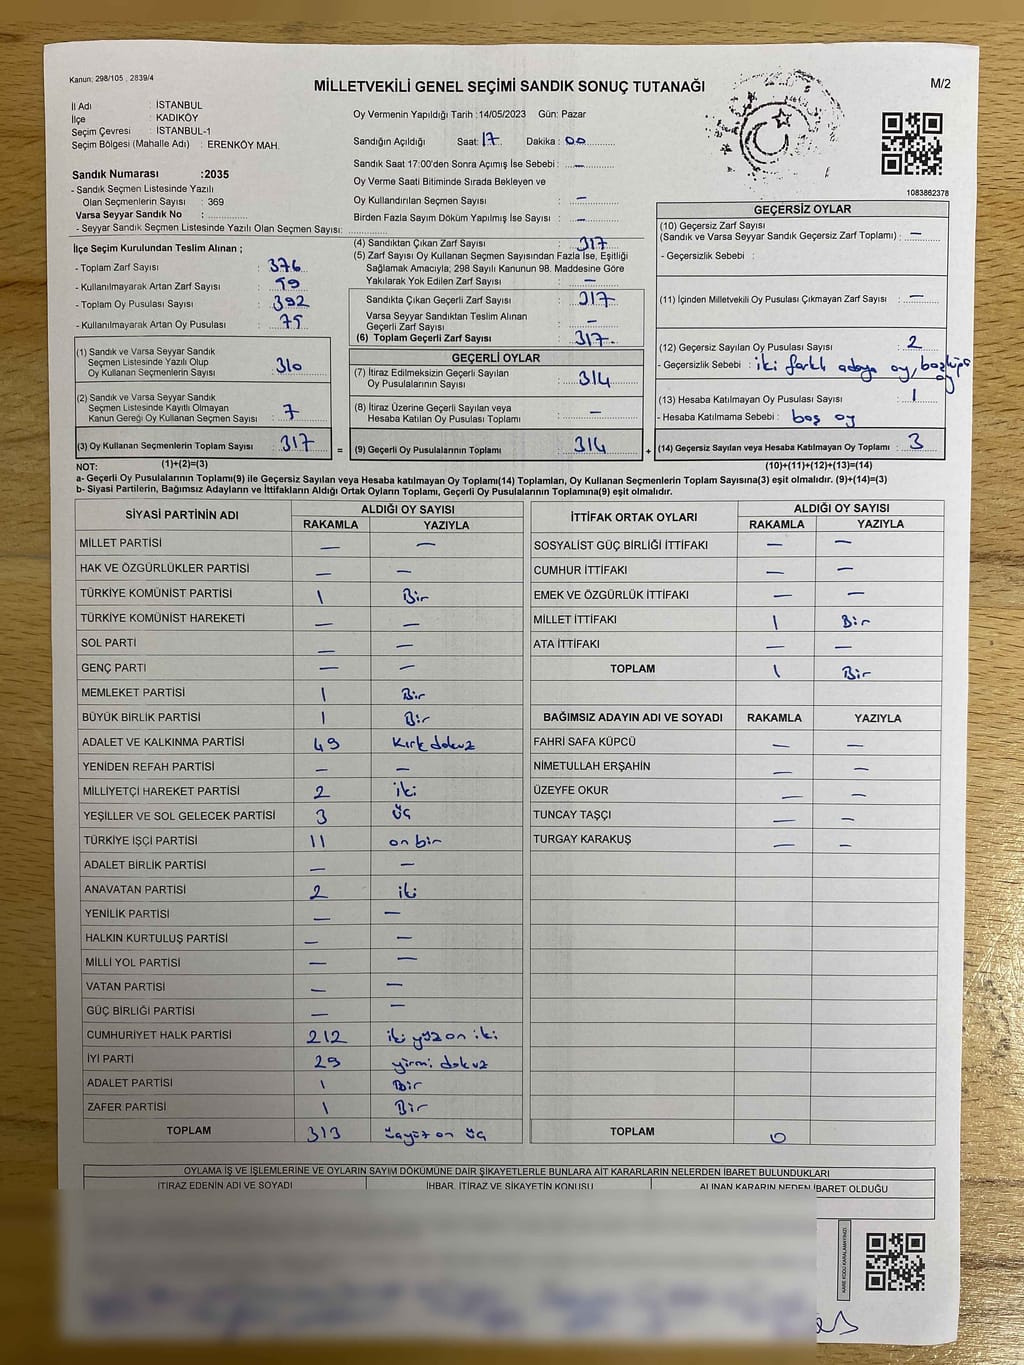 Kanun: 298/105 , 2839/4
MİLLETVEKİLİ GENEL SEÇİMİ SANDIK SONUÇ TUTANAĞI
M/2
İl Adı : İSTANBUL
İlçe : KADIKÖY
Seçim Çevresi : İSTANBUL-1
Seçim Bölgesi (Mahalle Adı) : ERENKÖY MAH.
Sandık Numarası :2035
- Sandık Seçmen Listesinde Yazılı
Olan Seçmenlerin Sayısı : 369
Varsa Seyyar Sandık No : ..............
- Seyyar Sandık Seçmen Listesinde Yazılı Olan Seçmen Sayısı: ..............
Oy Vermenin Yapıldığı Tarih :14/05/2023 Gün: Pazar
Sandığın Açıldığı Saat: 17 Dakika : 00
Sandık Saat 17:00'den Sonra Açımış İse Sebebi : —
Oy Verme Saati Bitiminde Sırada Bekleyen ve
Oy Kullandırılan Seçmen Sayısı : —
Birden Fazla Sayım Döküm Yapılmış İse Sayısı : —
1083862378
İlçe Seçim Kurulundan Teslim Alınan ;
- Toplam Zarf Sayısı : 376
- Kullanılmayarak Artan Zarf Sayısı : 59
- Toplam Oy Pusulası Sayısı : 392
- Kullanılmayarak Artan Oy Pusulası : 75
(1) Sandık ve Varsa Seyyar Sandık
Seçmen Listesinde Yazılı Olup
Oy Kullanan Seçmenlerin Sayısı : 310
(2) Sandık ve Varsa Seyyar Sandık
Seçmen Listesinde Kayıtlı Olmayan
Kanun Gereği Oy Kullanan Seçmen Sayısı : 7
(3) Oy Kullanan Seçmenlerin Toplam Sayısı : 317
(1)+(2)=(3)
(4) Sandıktan Çıkan Zarf Sayısı : 317
(5) Zarf Sayısı Oy Kullanan Seçmen Sayısından Fazla İse, Eşitliği
Sağlamak Amacıyla; 298 Sayılı Kanunun 98. Maddesine Göre
Yakılarak Yok Edilen Zarf Sayısı : —
Sandıkta Çıkan Geçerli Zarf Sayısı : 317
Varsa Seyyar Sandıktan Teslim Alınan
Geçerli Zarf Sayısı : —
(6) Toplam Geçerli Zarf Sayısı : 317
GEÇERLİ OYLAR
(7) İtiraz Edilmeksizin Geçerli Sayılan
Oy Pusulalarının Sayısı : 314
(8) İtiraz Üzerine Geçerli Sayılan veya
Hesaba Katılan Oy Pusulaları Toplamı : —
= (9) Geçerli Oy Pusulalarının Toplamı : 314
GEÇERSİZ OYLAR
(10) Geçersiz Zarf Sayısı
(Sandık ve Varsa Seyyar Sandık Geçersiz Zarf Toplamı) : —
- Geçersizlik Sebebi :
(11) İçinden Milletvekili Oy Pusulası Çıkmayan Zarf Sayısı : —
(12) Geçersiz Sayılan Oy Pusulası Sayısı : 2
- Geçersizlik Sebebi : iki farklı adaya oy,
oy
(13) Hesaba Katılmayan Oy Pusulası Sayısı : 1
- Hesaba Katılmama Sebebi : boş oy
+ (14) Geçersiz Sayılan veya Hesaba Katılmayan Oy Toplamı : 3
(10)+(11)+(12)+(13)=(14)
NOT:
a- Geçerli Oy Pusulalarının Toplamı(9) ile Geçersiz Sayılan veya Hesaba katılmayan Oy Toplamı(14) Toplamları, Oy Kullanan Seçmenlerin Toplam Sayısına(3) eşit olmalıdır. (9)+(14)=(3)
b- Siyasi Partilerin, Bağımsız Adayların ve İttifakların Aldığı Ortak Oyların Toplamı, Geçerli Oy Pusulalarının Toplamına(9) eşit olmalıdır.
SİYASİ PARTİNİN ADI ALDIĞI OY SAYISI
RAKAMLA YAZIYLA
MİLLET PARTİSİ — —
HAK VE ÖZGÜRLÜKLER PARTİSİ — —
TÜRKİYE KOMÜNİST PARTİSİ 1 Bir
TÜRKİYE KOMÜNİST HAREKETİ — —
SOL PARTİ — —
GENÇ PARTİ — —
MEMLEKET PARTİSİ 1 Bir
BÜYÜK BİRLİK PARTİSİ 1 Bir
ADALET VE KALKINMA PARTİSİ 49 Kırk dokuz
YENİDEN REFAH PARTİSİ — —
MİLLİYETÇİ HAREKET PARTİSİ 2 iki
YEŞİLLER VE SOL GELECEK PARTİSİ 3 Üç
TÜRKİYE İŞÇİ PARTİSİ 11 on bir
ADALET BİRLİK PARTİSİ — —
ANAVATAN PARTİSİ 2 iki
YENİLİK PARTİSİ — —
HALKIN KURTULUŞ PARTİSİ — —
MİLLİ YOL PARTİSİ — —
VATAN PARTİSİ — —
GÜÇ BİRLİĞİ PARTİSİ — —
CUMHURİYET HALK PARTİSİ 212 iki yüz on iki
İYİ PARTİ 29 yirmi dokuz
ADALET PARTİSİ 1 Bir
ZAFER PARTİSİ 1 Bir
TOPLAM 313 üçyüz on üç
İTTİFAK ORTAK OYLARI ALDIĞI OY SAYISI
RAKAMLA YAZIYLA
SOSYALİST GÜÇ BİRLİĞİ İTTİFAKI — —
CUMHUR İTTİFAKI — —
EMEK VE ÖZGÜRLÜK İTTİFAKI — —
MİLLET İTTİFAKI 1 Bir
ATA İTTİFAKI — —
TOPLAM 1 Bir
BAĞIMSIZ ADAYIN ADI VE SOYADI RAKAMLA YAZIYLA
FAHRİ SAFA KÜPCÜ — —
NİMETULLAH ERŞAHİN — —
ÜZEYFE OKUR — —
TUNCAY TAŞÇI — —
TURGAY KARAKUŞ — —
TOPLAM 0
OYLAMA İŞ VE İŞLEMLERİNE VE OYLARIN SAYIM DÖKÜMÜNE DAİR ŞİKAYETLERLE BUNLARA AİT KARARLARIN NELERDEN İBARET BULUNDUKLARI
İTİRAZ EDENİN ADI VE SOYADI İHBAR, İTİRAZ VE ŞİKAYETİN KONUSU ALINAN KARARIN NEDEN İBARET OLDUĞU
KARE KODU KARALAMAYINIZ!